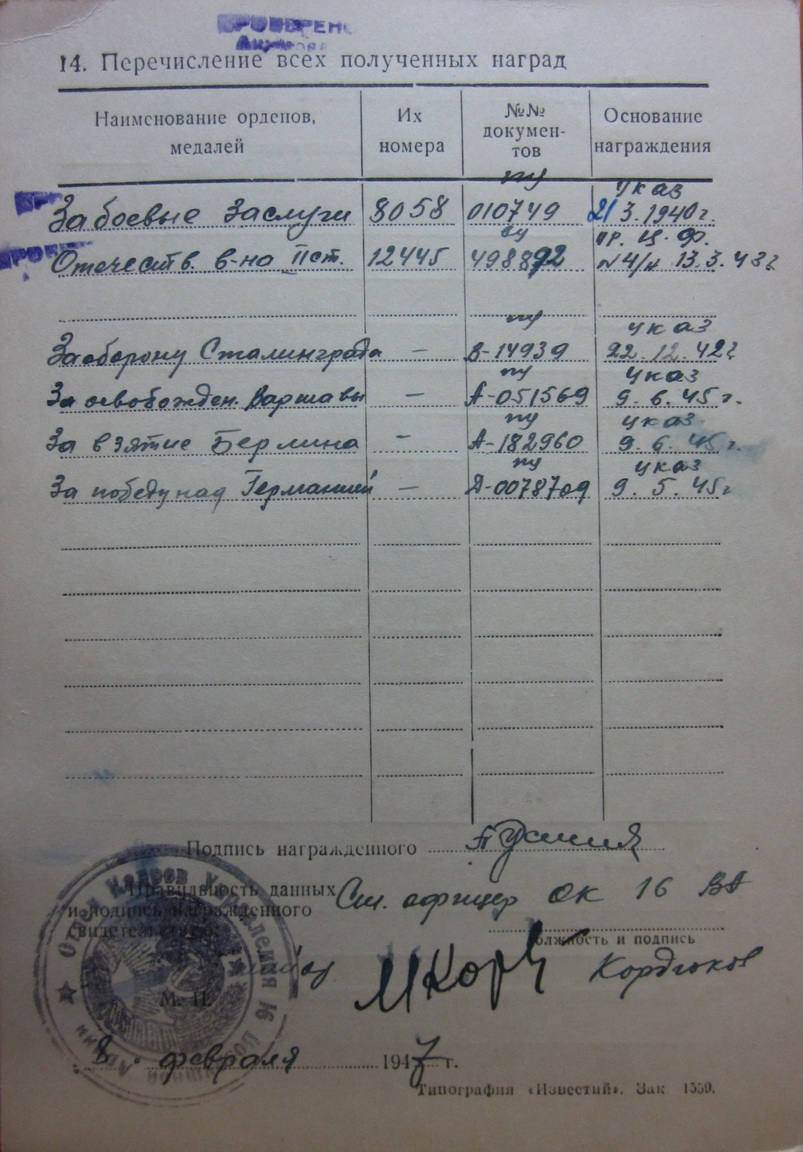 ПРОВЕРЕНО
14. Перечисление всех полученных наград
Наименование орденов, медалей
Их номера
№№ документов
Основание награждения
За боевые заслуги 8058 пу 010749 указ 21 3.1940г.
Отечеств. в-на II ст. 12445 ву 498892 пр. Ц.Ф. №4/н 13.3.43г
За оборону Сталинграда — пу В-14939 указ 22.12.42г
За освобожден. Варшавы — пу А-051569 указ 9.6.45г.
За взятие Берлина — пу А-182960 указ 9.6.45г.
За победу над Германией — пу А-0078709 указ 9.5.45г
Подпись награжденного
Правильность данных Ст. офицер ОК 16 ВА
и подпись награжденного
свидетельствую:
должность и подпись
майор Кордюков
М. П.
Отдел Кадров Управления 16 Воздушной Армии
„8" февраля 1947 г.
Типография «Известий». Зак 1559.